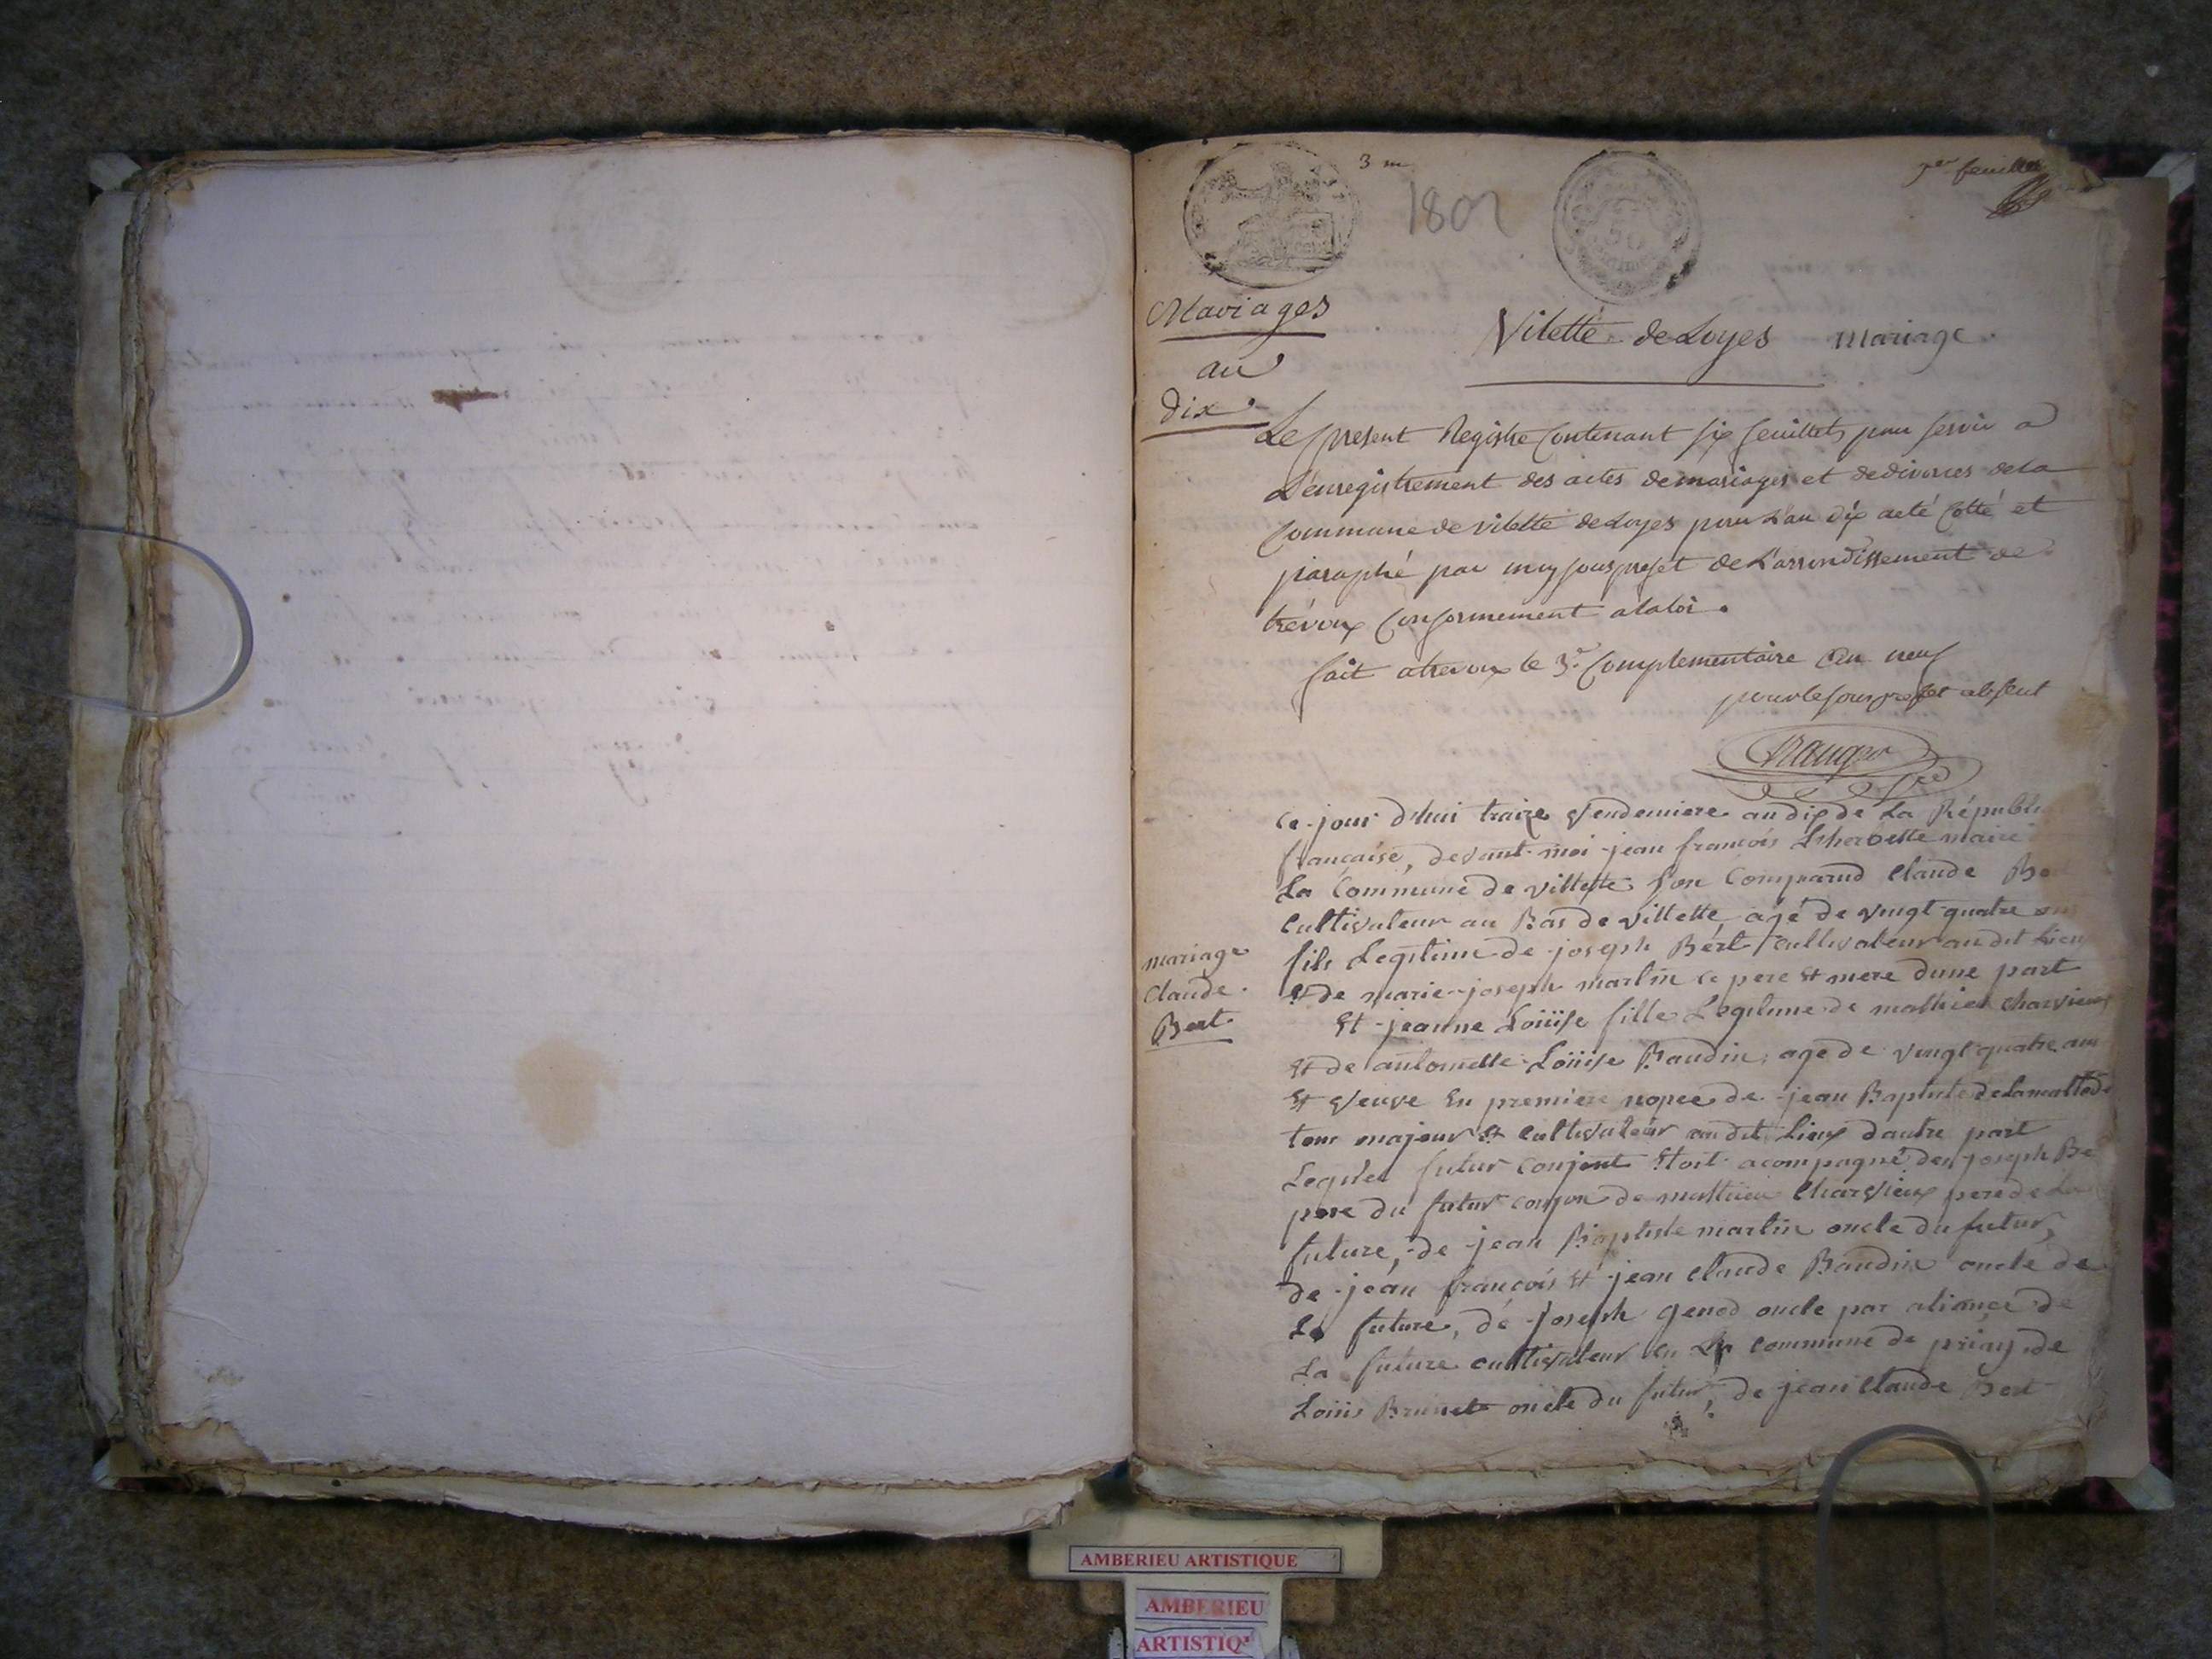 3 m
1er feuillet
1802
50
Mariages
an
dix
Vilette de Loyes mariage.
Le present Registre Contenant six feuillets pour servir a
L'enregistrement des actes de mariages et de divorces de la
Commune de vilette de Loyes pour L'an dix a été Cotté et
paraphé par moy sousprefet de L'arrondissement de
trévoux Conformement a la loi.
fait a trevoux le 3e. Complementaire an neuf
pour le sous prefet absent
Ce jour d'hui traize Vendemiere an dix de La Républi
francaise, devant moi jean francois maire
La Commune de villette son Comparud Claude Be
Cultivateur au Bas de villette agé de vingt quatre ans
fils Legitime de joseph Bért Cultivateur au dit Lieu
et de marie joseph martin ce pere et mere dune part
mariage
Claude.
Bert.
Et jeanne Loüise fille Legitime de mathieu Charvieux
Et de antoinette Loüise Baudin, age de vingt quatre ans
Et Veuve En premiere nopce de jean Baptiste Delamatte de
tous majeur et Cultivateur au dit Lieux dautre part
Lequles futur conjont Etoit acompagné de joseph Be
pere du futur conjon de mathieu Charvieux pere de La
future, de jean Baptiste martin oncle du futur,
de jean francois Et jean Claude Baudin oncle de
La future, de joseph genod oncle par aliance de
La future cultivateur En La Commune de priay de
Loüis Brunet oncle du futur, de jean Claude Bert
AMBERIEU ARTISTIQUE
AMBERIEU
ARTISTIQ